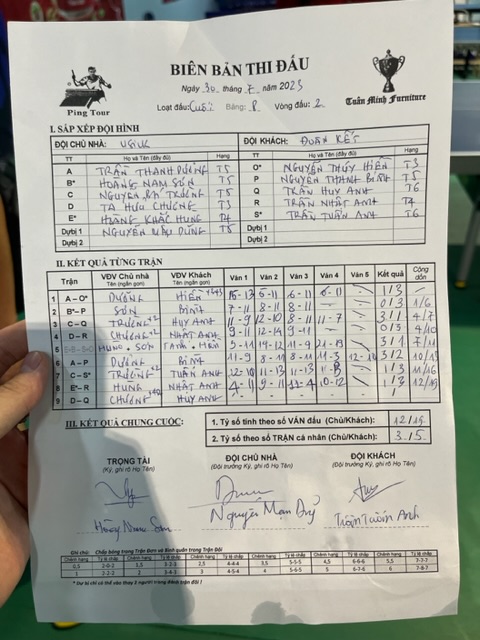 BIÊN BẢN THI ĐẤU
Ping Tour
Ngày 30 tháng 7 năm 2023
Tuấn Minh Furniture
Loạt đấu: Cuối Bảng: B Vòng đấu: 2
I. SẮP XẾP ĐỘI HÌNH
ĐỘI CHỦ NHÀ: ĐỘI KHÁCH: ĐOÀN KẾT
TT Họ và Tên (đầy đủ) Hạng TT Họ và Tên (đầy đủ) Hạng
A TRẦN THANH DƯƠNG T5 O* NGUYỄN THÚY HIỀN T3
B* HOÀNG NAM SƠN T5 P NGUYỄN THANH BÌNH T5
C NGUYỄN BÁ TRƯỜNG T5 Q TRẦN HUY ANH T6
D TẠ HỮU CHƯƠNG T3 R TRẦN NHẬT ANH T4
E* HOÀNG KHẮC HÙNG T4 S* TRẦN TUẤN ANH T6
Dự bị 1 NGUYỄN MẠNH DŨNG T5 Dự bị 1
Dự bị 2 Dự bị 2
II. KẾT QUẢ TỪNG TRẬN
Trận VĐV Chủ nhà VĐV Khách Ván 1 Ván 2 Ván 3 Ván 4 Ván 5 Kết quả Cộng dồn
Tên (ngắn gọn) Tên (ngắn gọn)
1 A – O* DƯƠNG HIỀN 6-11 1/3
2 B* – P SƠN BÌNH 7-11 8-11 8-11 0/3 1/6
3 C – Q TRƯỜNG HUY ANH 11-9 12-10 8-11 11-7 3/1 4/7
4 D – R CHƯƠNG NHẬT ANH 9-11 12-14 9-11 0/3 4/10
5 HÙNG - SƠN T.ANH - HIỀN 5-11 14-12 11-9 21-19 3/1 7/11
6 A – P DƯƠNG BÌNH 11-9 8-11 8-11 11-3 12-10 3/2 10/13
7 C – S* TRƯỜNG TUẤN ANH 12-10 11-13 1/3 11/16
8 E* – R HÙNG NHẬT ANH 4-11 9-11 11-4 10-12 1/3 12/19
9 D – Q CHƯƠNG HUY ANH
III. KẾT QUẢ CHUNG CUỘC:
1. Tỷ số tính theo số VÁN đấu (Chủ/Khách): 12/19
2. Tỷ số theo số TRẬN cá nhân (Chủ/Khách): 3/5
TRỌNG TÀI ĐỘI CHỦ NHÀ ĐỘI KHÁCH
(Ký, ghi rõ Họ Tên) (Đội trưởng Ký, ghi rõ Họ Tên) (Đội trưởng Ký, ghi rõ Họ Tên)
Hoàng Nam Sơn Nguyễn Mạnh Dũng Trần Tuấn Anh
Ghi chú: Chấp bóng trong Trận Đơn và Bình quân trong Trận Đôi
Chênh hạng Tỷ lệ chấp Chênh hạng Tỷ lệ chấp Chênh hạng Tỷ lệ chấp Chênh hạng Tỷ lệ chấp Chênh hạng Tỷ lệ chấp Chênh hạng Tỷ lệ chấp
0,5 2-0-2 1,5 3-2-3 2,5 4-4-4 3,5 5-5-5 4,5 6-6-6 5,5 7-7-7
1 2-2-2 2 3-3-3 3 4-5-4 4 5-6-5 5 6-7-6 6 7-8-7
* Dự bị có thể vào thay 1 người trong đánh trận đôi !